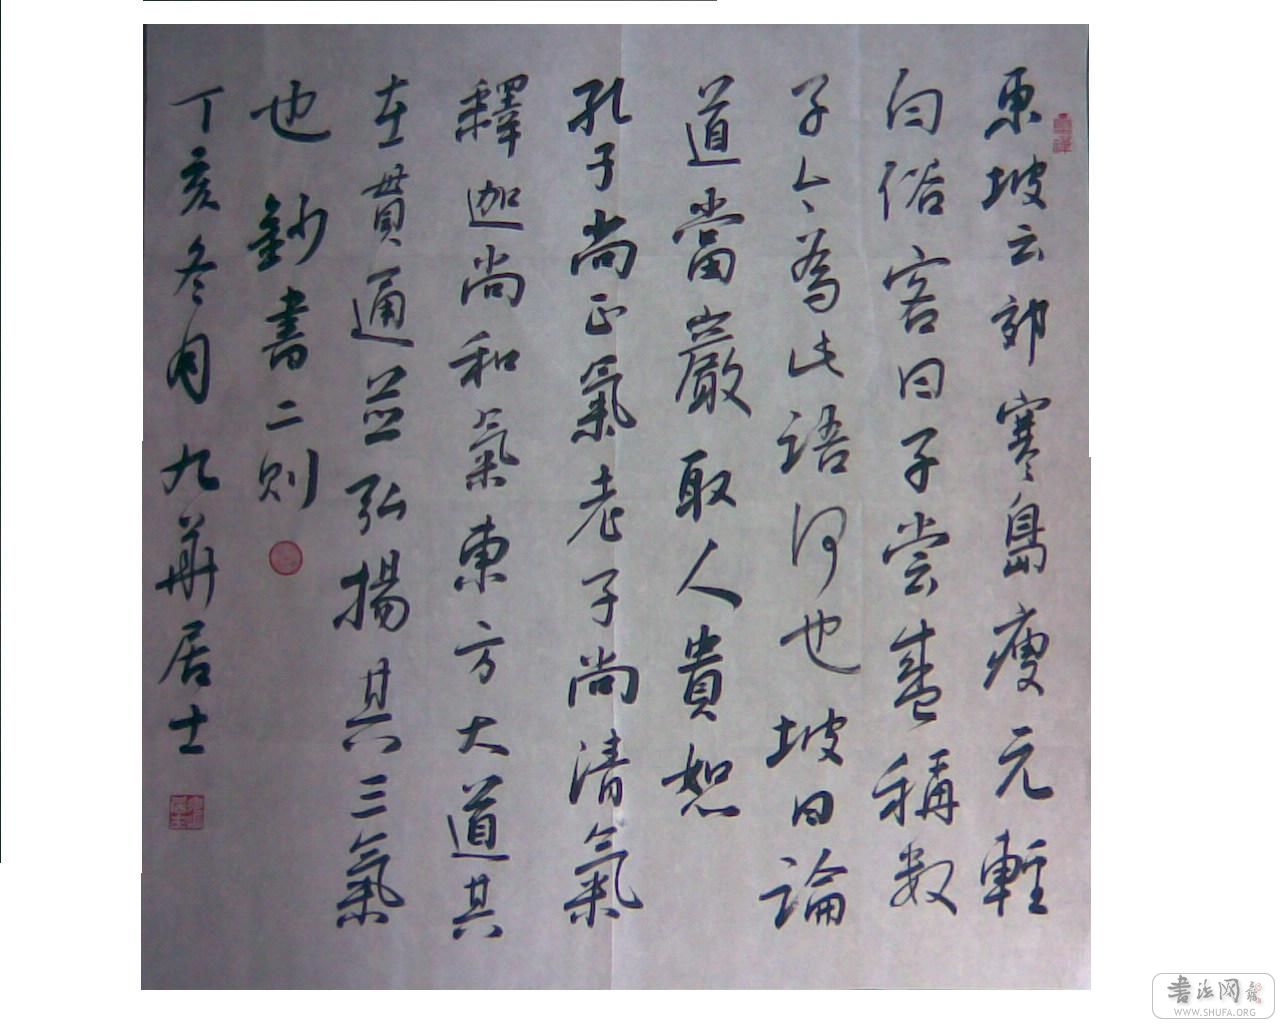 東坡云郊寒島瘦元輕
白俗客曰子嘗盛稱數
子今為此語何也坡曰論
道當嚴取人貴恕
孔子尚正氣老子尚清氣
釋迦尚和氣東方大道其
在貫通並弘揚其三氣
也 鈔書二則
丁亥冬月九華居士
書法网
WWW.SHUFA.ORG